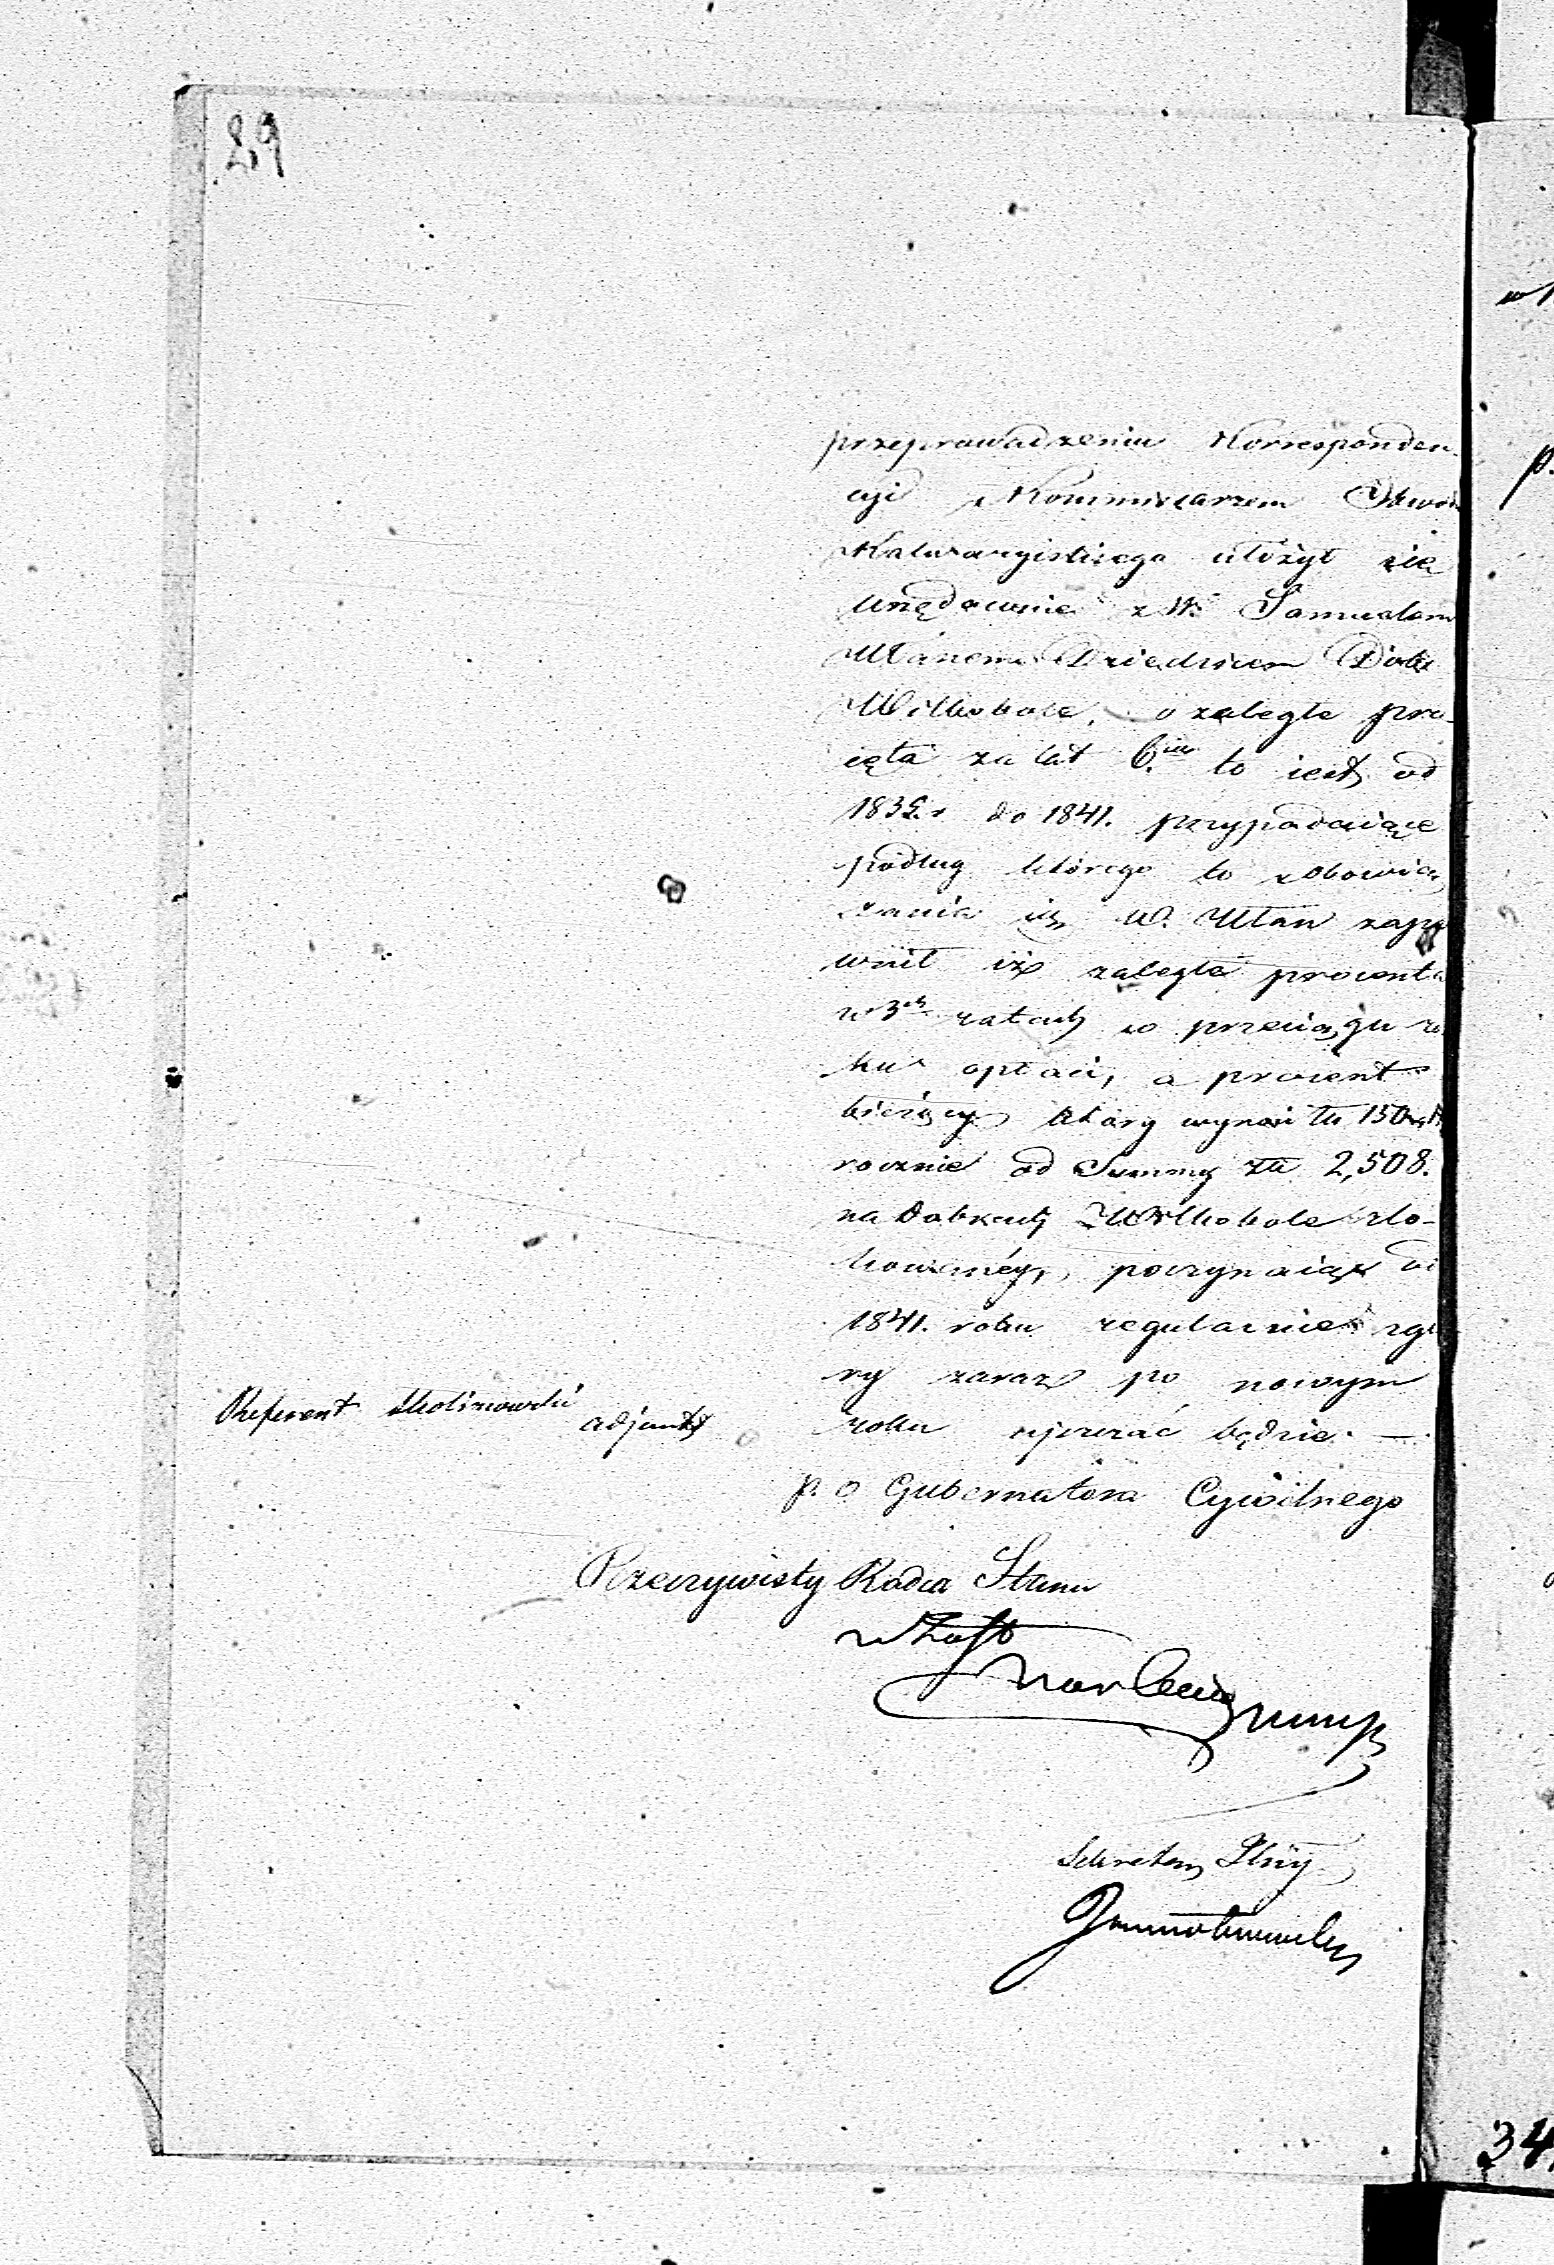 29
przeprowadzeniu Korresponden-
cyi z Kommissarzem Obwodu
Kalwaryiskiego ułożył się
urzędownie z W. Samuelem
Ułanem Dziedzicem Dóbr
Wilkobole, o zaległe pro-
cęta za lat 6. to iest od
1835. r do 1841. przypadaiące
podług którego to zobowią
zania się W. Ułan zape
wnił iż zaległe procenta
w 3ch ratach w przeciągu ro
ku opłaci, a procent
bieżący który wynosi złł 150
rocznie od Summy złł 2,508.
na dobrach Wilkobole zlo-
kowanéy, poczynaiąc od
1841. roku regularnie zgó
ry zaraz po nowym
roku uiszczać będzie. —
Referent adjunkt
p. o Gubernatora Cywilnego
Rzeczywisty Radca Stanu
w Zast
Sekretarz